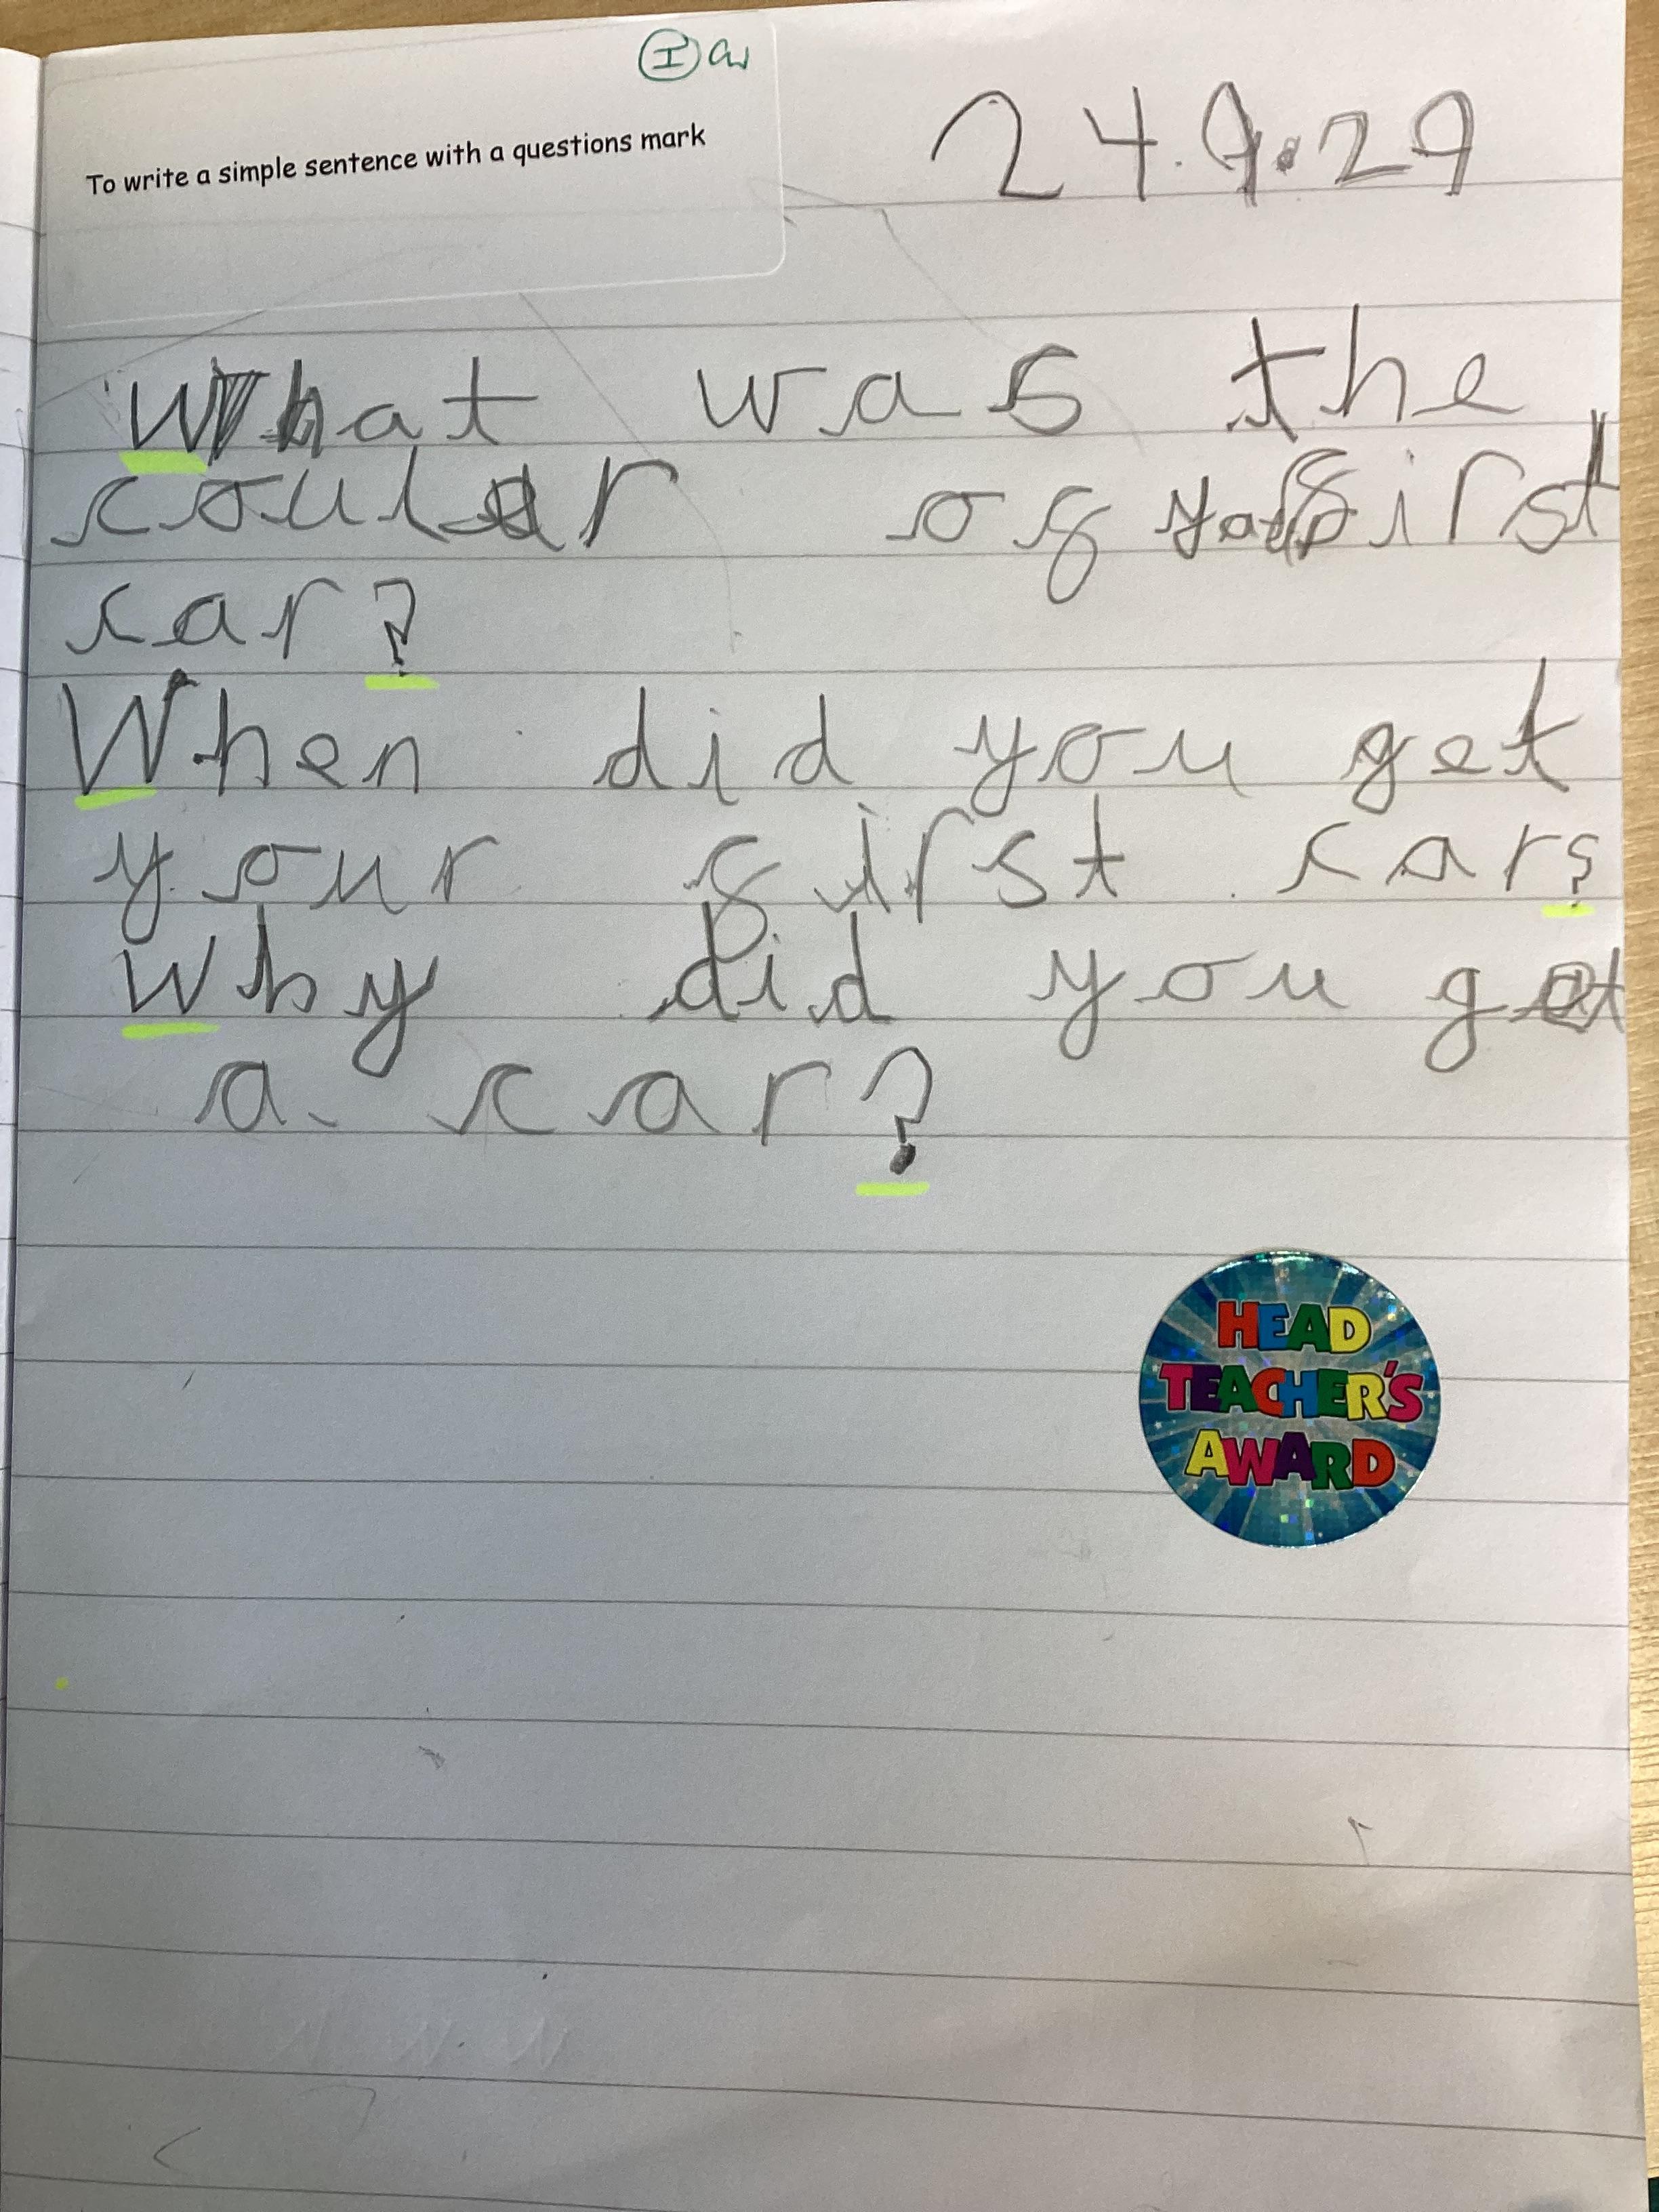 I
To write a simple sentence with a questions mark
24.9.29
What was the
coular of your first
car?
When did you get
your first car?
Why did you get
a car?
HEAD
TEACHER'S
AWARD